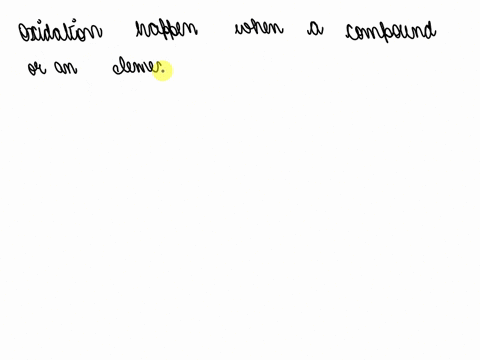 Oxidation happen when a compound
or an eleme